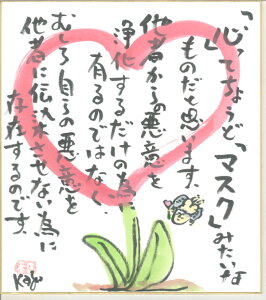 「心ってちょうど、「マスク」みたいな
ものだと思います。
他者からの悪意を
浄化するだけの為に
有るのではなく、
むしろ自らの悪意を
他者に伝染させない為に
存在するのです。